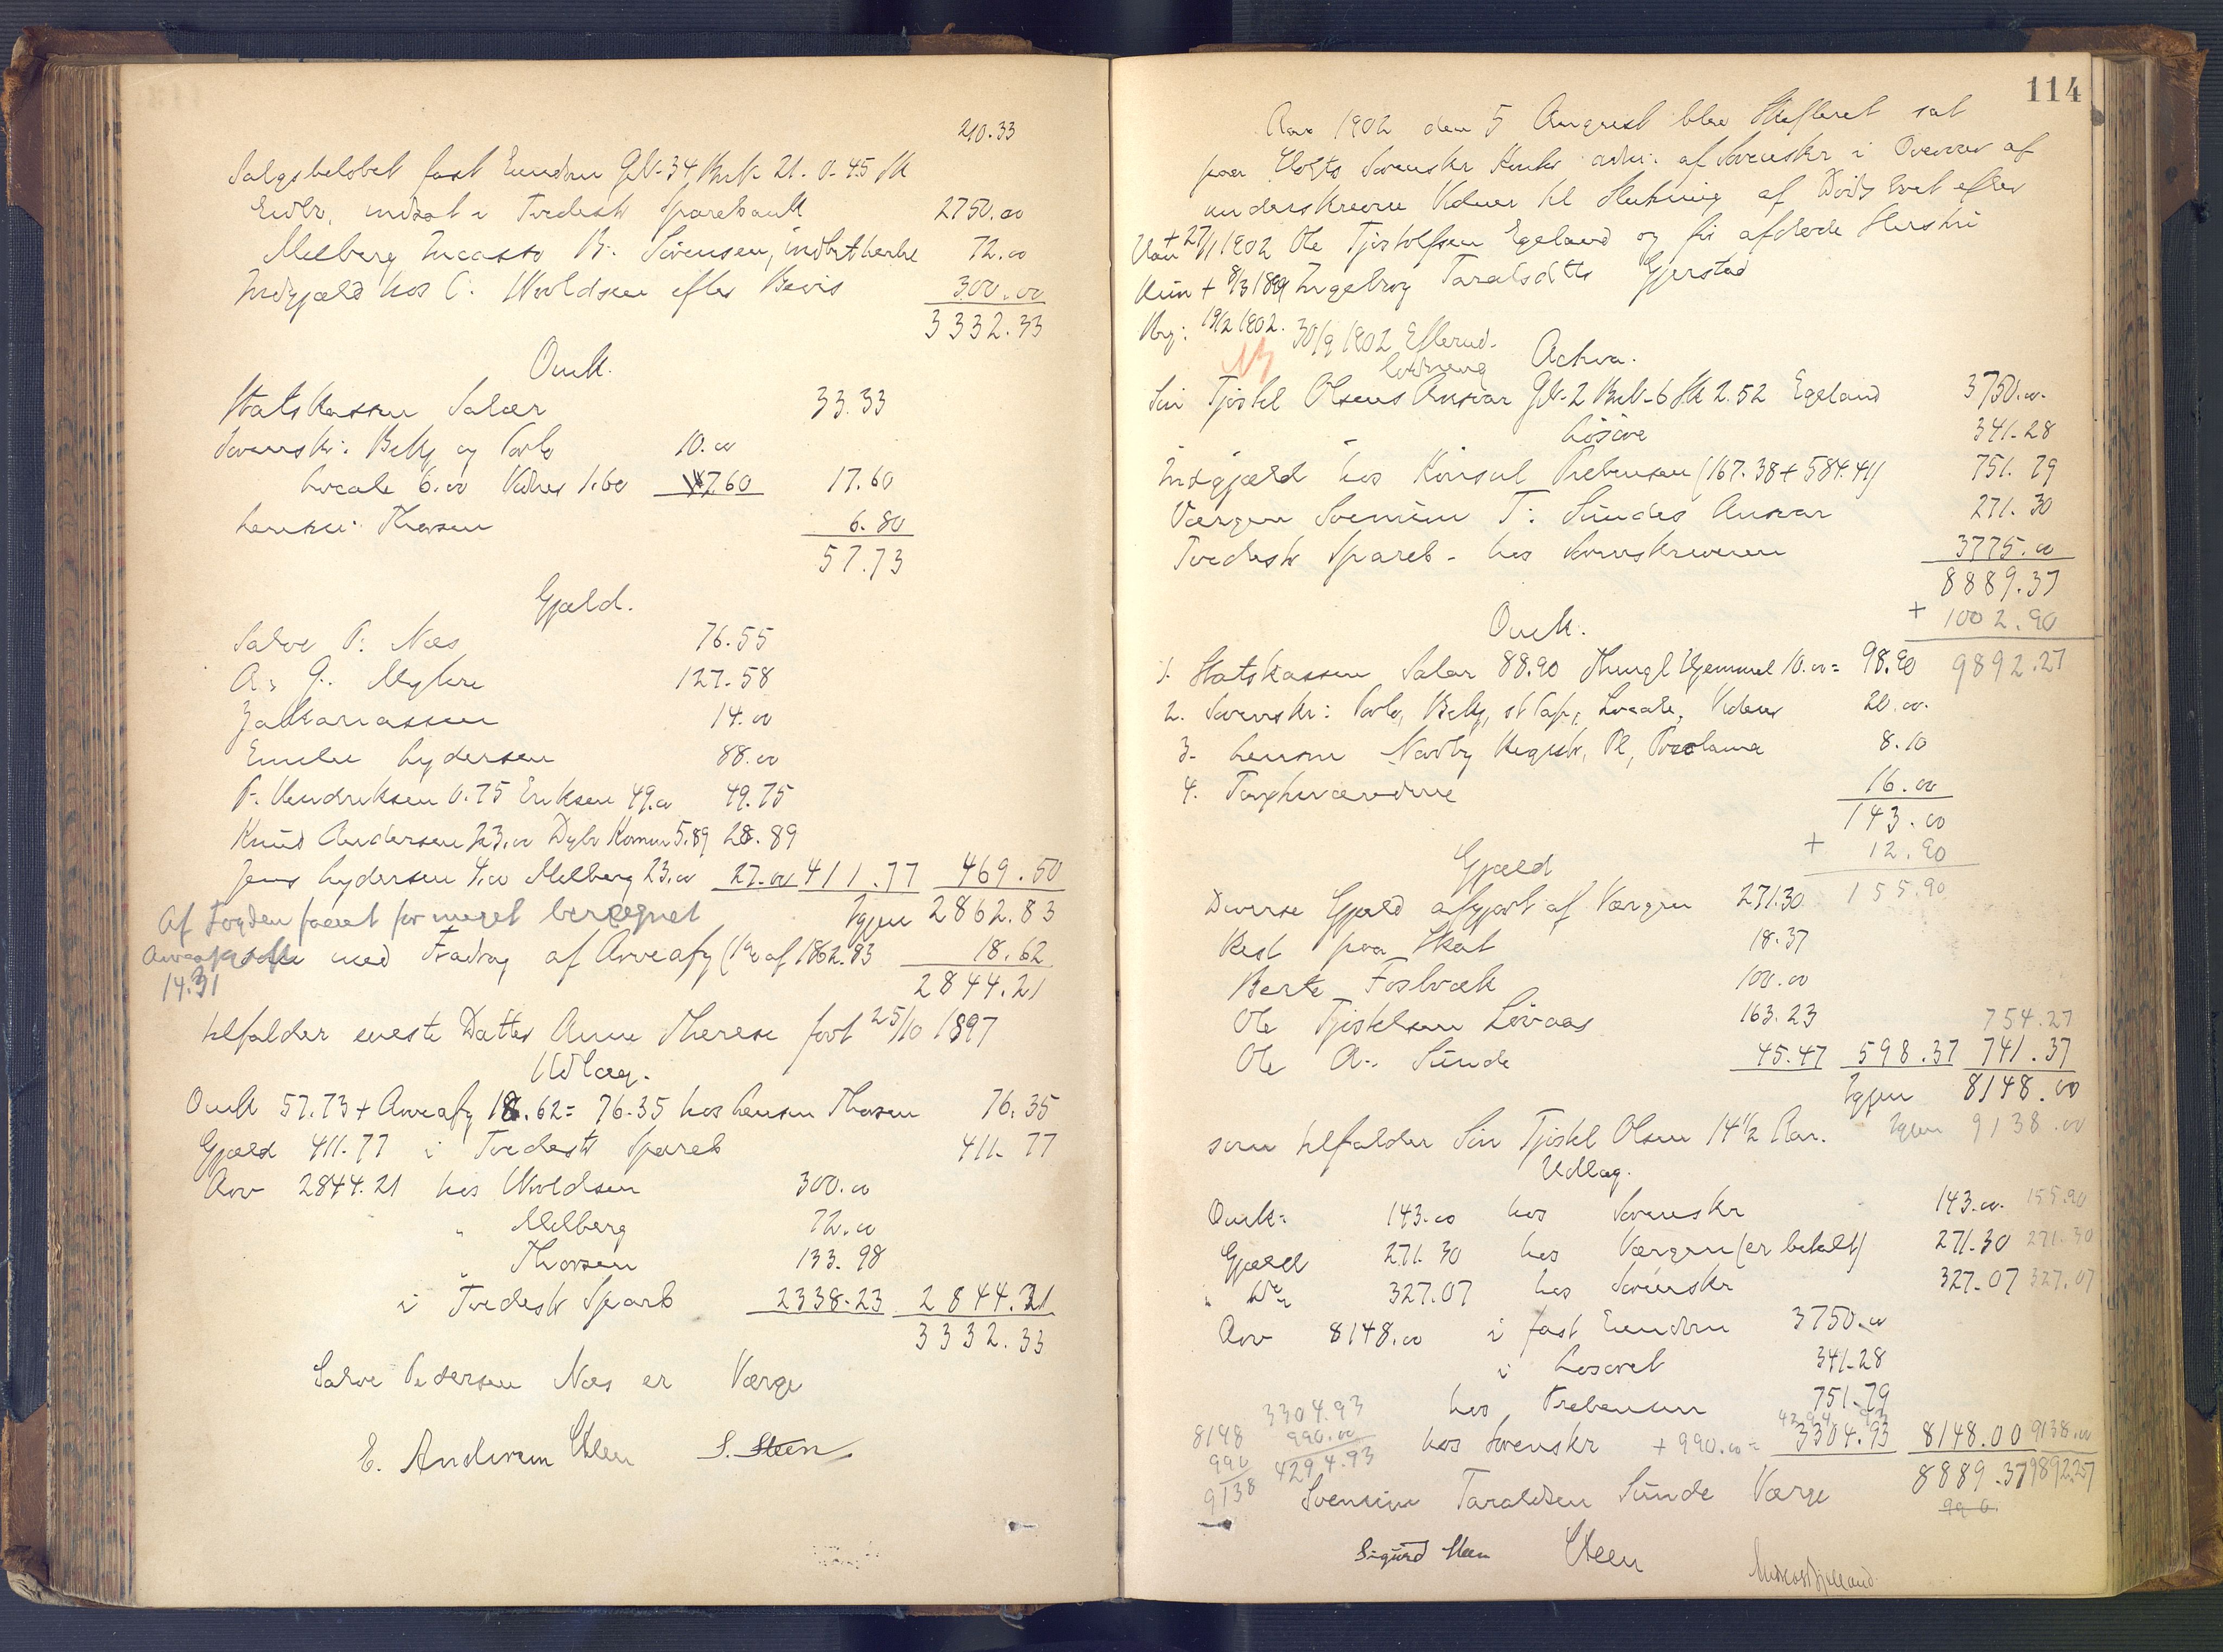 210.33
Salgsbeløbet fast Eiendom GN. 34 BrN. 21. 0-45 Sk
Eidbo, indsat i Tvedestr Sparebank 2750.00
Melberg Incasso P. Sørensen, indbet herhe 72.00
Indgjæld hos O. Woldsen efter Bevis 300.00
3332.33
Omk.
Statskassen Salær 33.33
Sorenskr: Bekj og Porto 10.00
Locale 6.00 Vidner 1.60 7.60 17.60
Lensm: Thorsen 6.80
57.73
Gjæld.
Salve P: Næs 76.55
A. G. Myhre 127.58
Zakkariassen 14.00
Emilie Lydersen 88.00
P. Hendriksen 0.75 Eriksen 49.00 49.75
Knud Andersen 23.00 Dybv Komm 5.89 28.89
Jens Lydersen 4.00 Melberg 23.00 27.00 411.77 469.50
Af Fogden faaet for meget beregnet Igjen 2862.83
med Fradrag af Arveafg (1% af 1862.83 18.62
14.31 2844.21
tilfalder eneste Datter Anne Therese født 25/10 1897
Udlæg.
Omk 57.73 + Arveafg 18.62 = 76.35 hos Lensm Thorsen 76.35
Gjæld 411.77 i Tvedestr Spareb 411.77
Arv 2844.21 hos Woldsen 300.00
" Melberg 72.00
" Thorsen 133.98
i Tvedestr Sparb 2338.23 2844.21
3332.33
Salve Pedersen Næs er Værge
E. Andersen Steen S. Steen
114
Aar 1902 den 5 August blev Skifteret sat
paa Holts Sorenskr Kontor adm: af Sorenskr i Overvær af
underskrevne Vidner til Slutning af Dødsboet efter
Han + 27/1 1902 Ole Tjøstolfsen Egeland og før afdøde Hustru
Hun + 8/3 1889 Ingeborg Taralsdtter Gjerstad
Reg: 19/2 1902. 30/9 1902 Efterud-
lodning Activa.
Søn Tjøstel Olsens Ansvar GN-2 BrN-6 Sk 2.52 Egeland 3750.00
Løsøre 341.28
Indgjæld hos Konsul Prebensen (167.38 + 584.41) 751.79
Værgen Svenum T: Sundes Ansvar 271.30
Tvedestr Spareb - hos Sorenskriveren 3775.00
8889.37
+ 1002.90
Omk.
1. Statskassen Salær 88.90 Thingl Hjemmel 10.00 = 98.90 9892.27
2. Sorenskr: Porto, Bekj, st Pap, Locale, Vidner 20.00
3. Lensm Nærby Registr, Pl, Proclama 8.10
4. 16.00
143.00
+ 12.90
Gjæld
Diverse Gjæld afgjort af Værgen 271.30 155.90
Rest paa Skat 18.37
Berte Fosbræk 100.00
Ole Tjøstelsen Løvaas 163.23 754.27
Ole A. Sunde 45.47 598.37 741.37
Igjen 8148.00
som tilfalder Søn Tjøstel Olsen 14 1/2 Aar. Igjen 9138.00
Udlæg.
Omk: 143.00 hos Sorenskr 143.00 155.90
Gjæld 271.30 hos Værgen (er betalt) 271.30 271.30
" Do 327.07 hos Sorenskr 327.07 327.07
Arv 8148.00 i fast Eiendom 3750.00
i Løsøret 341.28
hos Prebensen 751.79
3304.93 4294.93
8148 990.00 hos Sorenskr + 990.00 = 3304.93 8148.00 9138.00
990 4294.93 8889.37 9892.27
9138 Svenum Taraldsen Sunde Værge 990
Sigurd Steen Steen